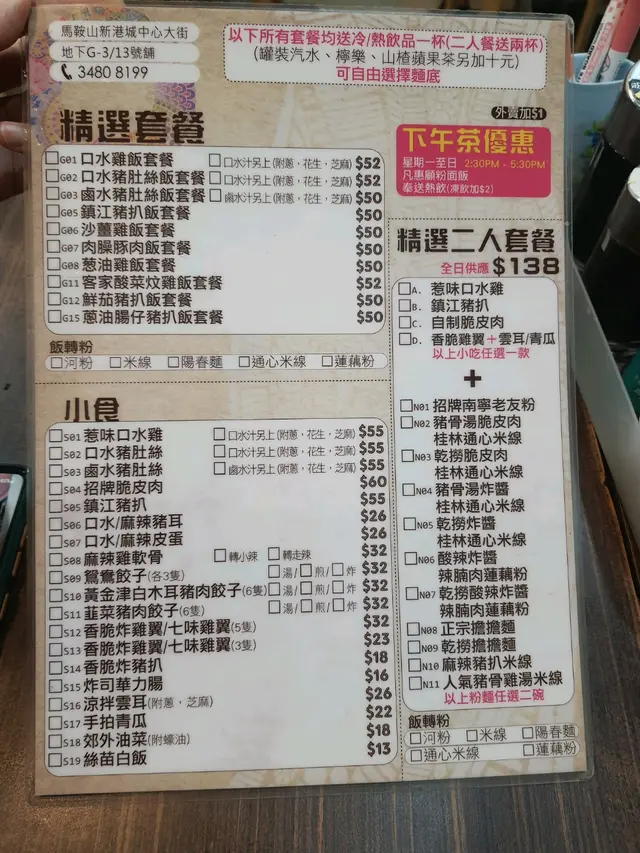 馬鞍山新港城中心大街
地下G-3/13號舖
3480 8199
以下所有套餐均送冷/熱飲品一杯(二人餐送兩杯)
(罐裝汽水、檸樂、山楂蘋果茶另加十元)
可自由選擇麵底
精選套餐
G01 口水雞飯套餐 口水汁另上(附蔥，花生，芝麻) $52
G02 口水豬肚絲飯套餐 口水汁另上(附蔥，花生，芝麻) $52
G03 鹵水豬肚絲飯套餐 鹵水汁另上(附蔥，花生，芝麻) $50
G05 鎮江豬扒飯套餐 $50
G06 沙薑雞飯套餐 $50
G07 肉燥豚肉飯套餐 $50
G08 葱油雞飯套餐 $50
G11 客家酸菜炆雞飯套餐 $52
G12 鮮茄豬扒飯套餐 $50
G15 蔥油腸仔豬扒飯套餐 $50
飯轉粉
河粉 米線 陽春麵 通心米線 蓮藕粉
小食
S01 惹味口水雞 口水汁另上(附蔥，花生，芝麻) $55
S02 口水豬肚絲 口水汁另上(附蔥，花生，芝麻) $55
S03 鹵水豬肚絲 鹵水汁另上(附蔥，花生，芝麻) $55
S04 招牌脆皮肉 $60
S05 鎮江豬扒 $55
S06 口水/麻辣豬耳 $26
S07 口水/麻辣皮蛋 $26
S08 麻辣雞軟骨 轉小辣 轉走辣 $32
S09 鴛鴦餃子(各3隻) 湯/ 煎/ 炸 $32
S10 黃金津白木耳豬肉餃子(6隻) 湯/ 煎/ 炸 $32
S11 韮菜豬肉餃子(6隻) 湯/ 煎/ 炸 $32
S12 香脆炸雞翼/七味雞翼(5隻) $32
S13 香脆炸雞翼/七味雞翼(3隻) $23
S14 香脆炸豬扒 $18
S15 炸司華力腸 $16
S16 涼拌雲耳(附蔥，芝麻) $26
S17 手拍青瓜 $22
S18 郊外油菜(附蠔油) $18
S19 絲苗白飯 $13
外賣加$1
下午茶優惠
星期一至日 2:30PM - 5:30PM
凡惠顧粉面飯
奉送熱飲(凍飲加$2)
精選二人套餐
全日供應 $138
A. 惹味口水雞
B. 鎮江豬扒
C. 自制脆皮肉
D. 香脆雞翼+雲耳/青瓜
以上小吃任選一款
+
N01 招牌南寧老友粉
N02 豬骨湯脆皮肉
桂林通心米線
N03 乾撈脆皮肉
桂林通心米線
N04 豬骨湯炸醬
桂林通心米線
N05 乾撈炸醬
桂林通心米線
N06 酸辣炸醬
辣腩肉蓮藕粉
N07 乾撈酸辣炸醬
辣腩肉蓮藕粉
N08 正宗擔擔麵
N09 乾撈擔擔麵
N10 麻辣豬扒米線
N11 人氣豬骨雞湯米線
以上粉麵任選二碗
飯轉粉
河粉 米線 陽春麵
通心米線 蓮藕粉